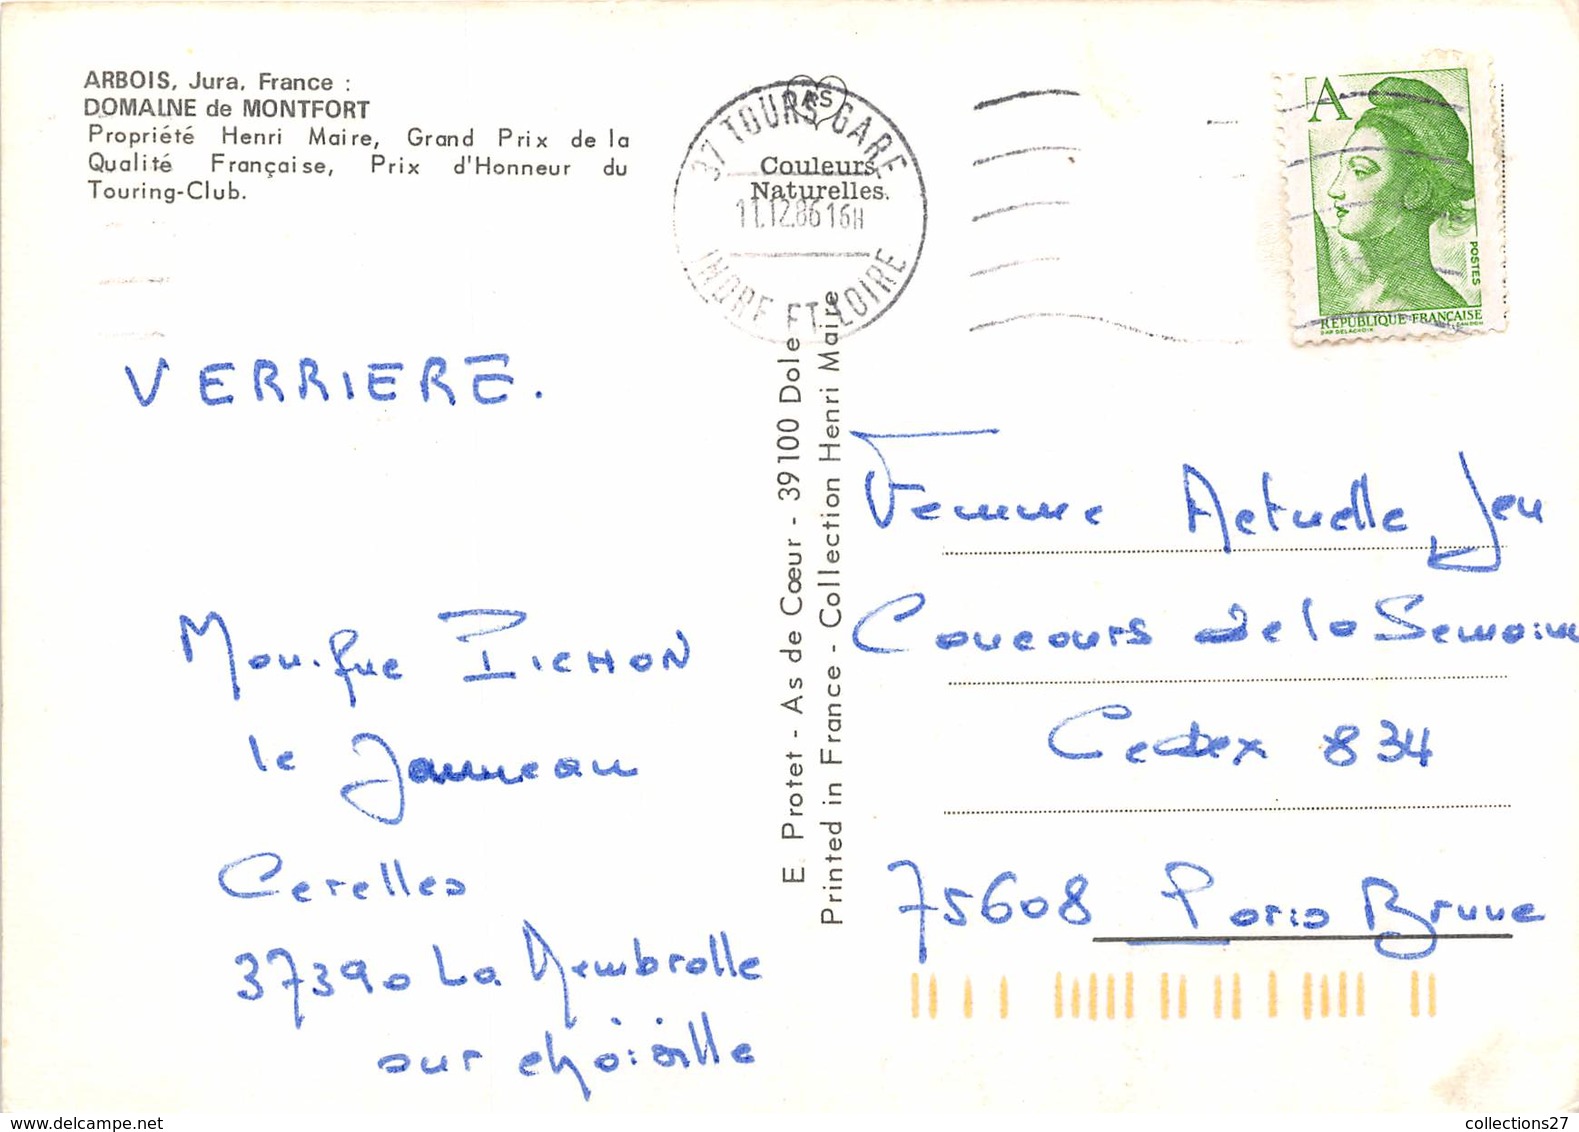 ARBOIS, Jura, France :
DOMAINE de MONTFORT
Propriété Henri Maire, Grand Prix de la
Qualité Française, Prix d'Honneur du
Touring-Club.
AS
Couleurs
Naturelles.
37 TOURS GARE
11.12.86 16H
INDRE ET LOIRE
A
POSTES
RÉPUBLIQUE FRANÇAISE
DAP. DELACROIX
GANDON
VERRIERE.
Monique PICHON
le Janneau
Cerelles
37390 La Membrolle
sur choisille
E. Protet - As de Cœur - 39100 Dole
Printed in France - Collection Henri Maire
Femme Actuelle Jeu
Concours de la Semaine
Cedex 834
75608 Paris Brune
collections27